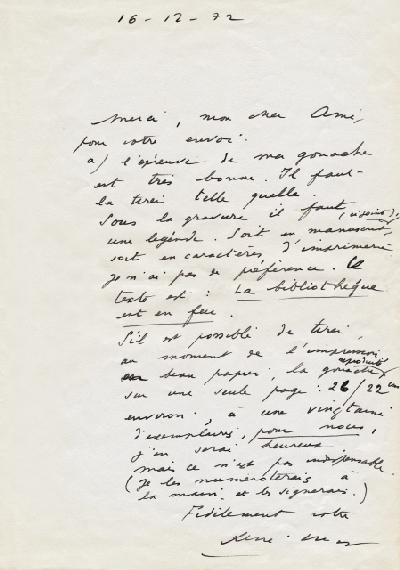 16-12-72
Merci, mon cher Ami,
pour votre envoi.
a) l'épreuve de ma gouache
est très bonne. Il faut
la tirer telle quelle.
Sous la gravure il faut
une légende. Soit en manuscrit,
soit en caractères d'imprimerie
je n'ai pas de préférence. Le
texte est : La bibliothèque
est en feu.
S'il est possible de tirer
au moment de l'impression
beau papier, la gouache
sur une seule page : 26/22 cm
environ, à une vingtaine
d'exemplaires, pour nous,
j'en serai heureux
mais ce n'est pas indispensable.
(je les numéroterais à
la main et les signerais.)
Fidèlement votre